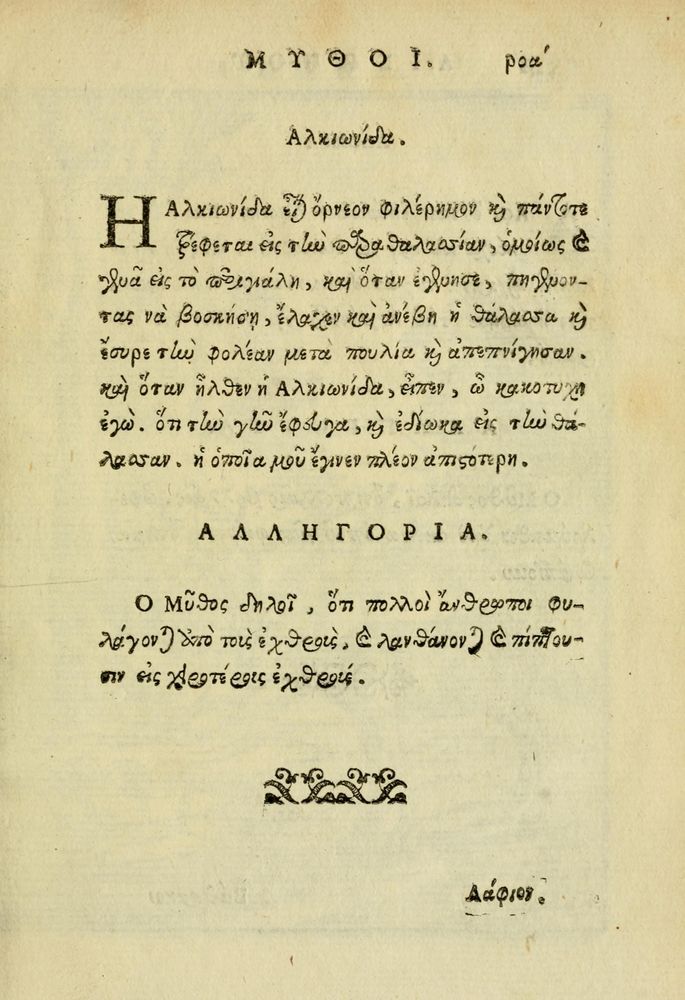 ΜΥΘΟΙ. ροα´
Αλκιωνίδα.
Η Αλκιωνίδα εἶναι ὄρνεον φιλέρημον καὶ πάντοτε
τρέφεται εἰς τὴν παραθαλασσίαν, ὁμοίως καὶ
γεννᾶ εἰς τὸ περιγιάλη, καὶ ὅταν ἐγέννησε, πηγένον-
τας νὰ βοσκήσῃ, ἔλαχεν καὶ ἀνέβη ἡ θάλασσα καὶ
ἔσυρε τὴν φολέαν μετὰ πουλία καὶ ἀπεπνίγησαν.
καὶ ὅταν ἦλθεν ἡ Αλκιωνίδα, εἶπεν, ὦ κακοτυχη
ἐγὼ. ὅτι τὴν γῆν ἔφευγα, καὶ ἐδίωκα εἰς τὴν θά-
λασσαν. ἡ ὁποῖα μοῦ ἔγινεν πλέον ἀπιστότερη.
ΑΛΛΗΓΟΡΙΑ.
Ο Μῦθος δηλοῖ, ὅτι πολλοὶ ἄνθρωποι φυ-
λάγονται ἀπὸ τοὺς ἐχθροὺς, καὶ λανθάνονται καὶ πίπτου-
σιν εἰς χειροτέρους ἐχθρούς.
Λάφιον.